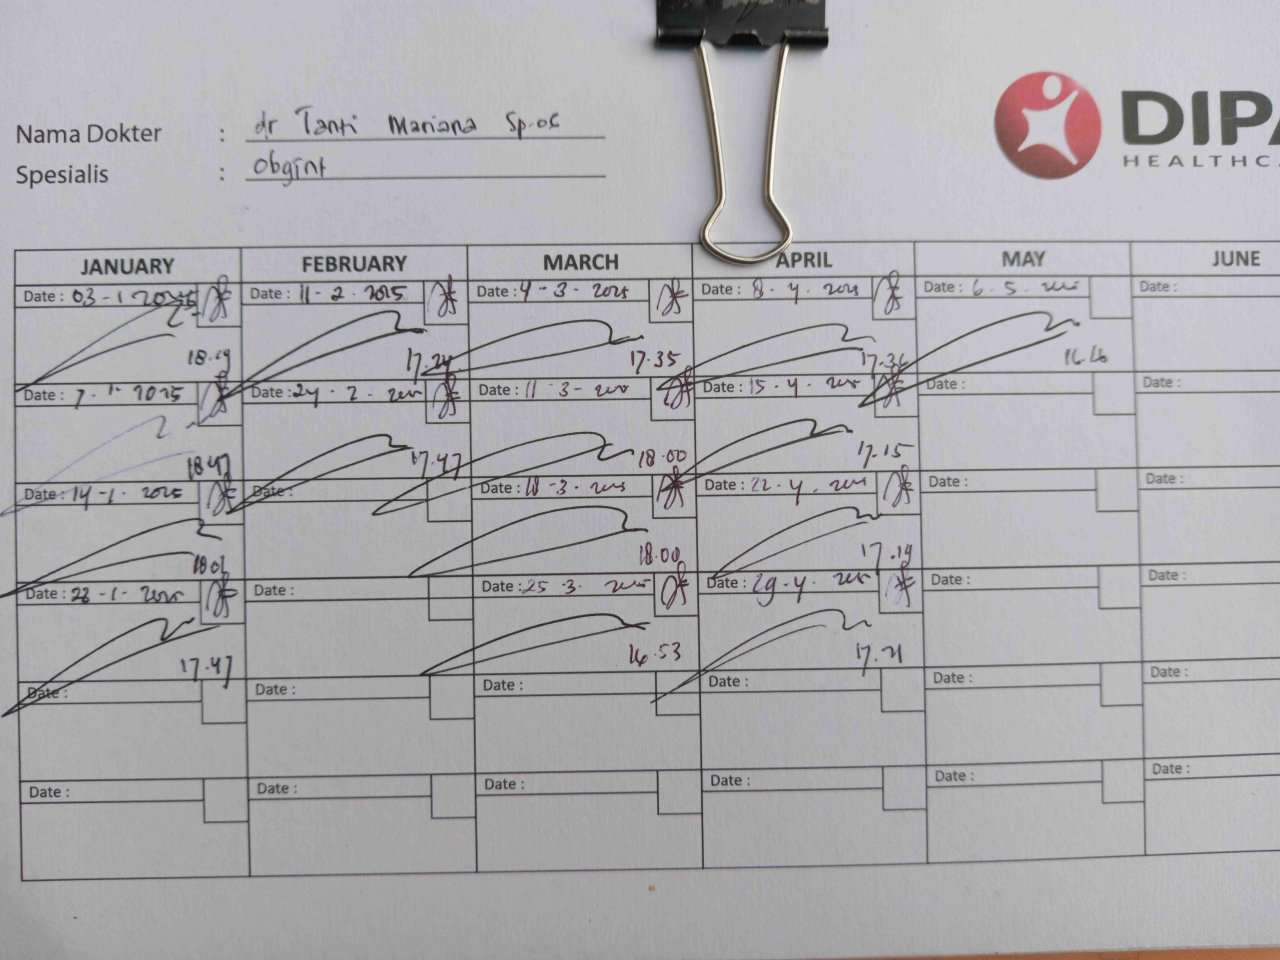 Nama Dokter : dr Tanti Mariana Sp.OG
Spesialis : Obgint
DIPA
HEALTHCA
JANUARY FEBRUARY MARCH APRIL MAY JUNE
Date : 03-1-2025 Date : 11-2-2025 Date : 4-3-2025 Date : 8-4-2025 Date : 6.5. Date :
18.19 17.24 17.35 17.36 16.16
Date : 7.1.2025 Date : 24-2-2025 Date : 11-3-2025 Date : 15-4-2025 Date : Date :
18.47 17.47 18.00 17.15
Date : 14-1-2025 Date : Date : 18-3-2025 Date : 22-4-2025 Date : Date :
18.00 17.19
Date : 28-1-2025 Date : Date : 25 3. 2025 Date : 29-4-2025 Date : Date :
17.47 16.53 17.21
Date : Date : Date : Date : Date : Date :
Date : Date : Date : Date : Date : Date :